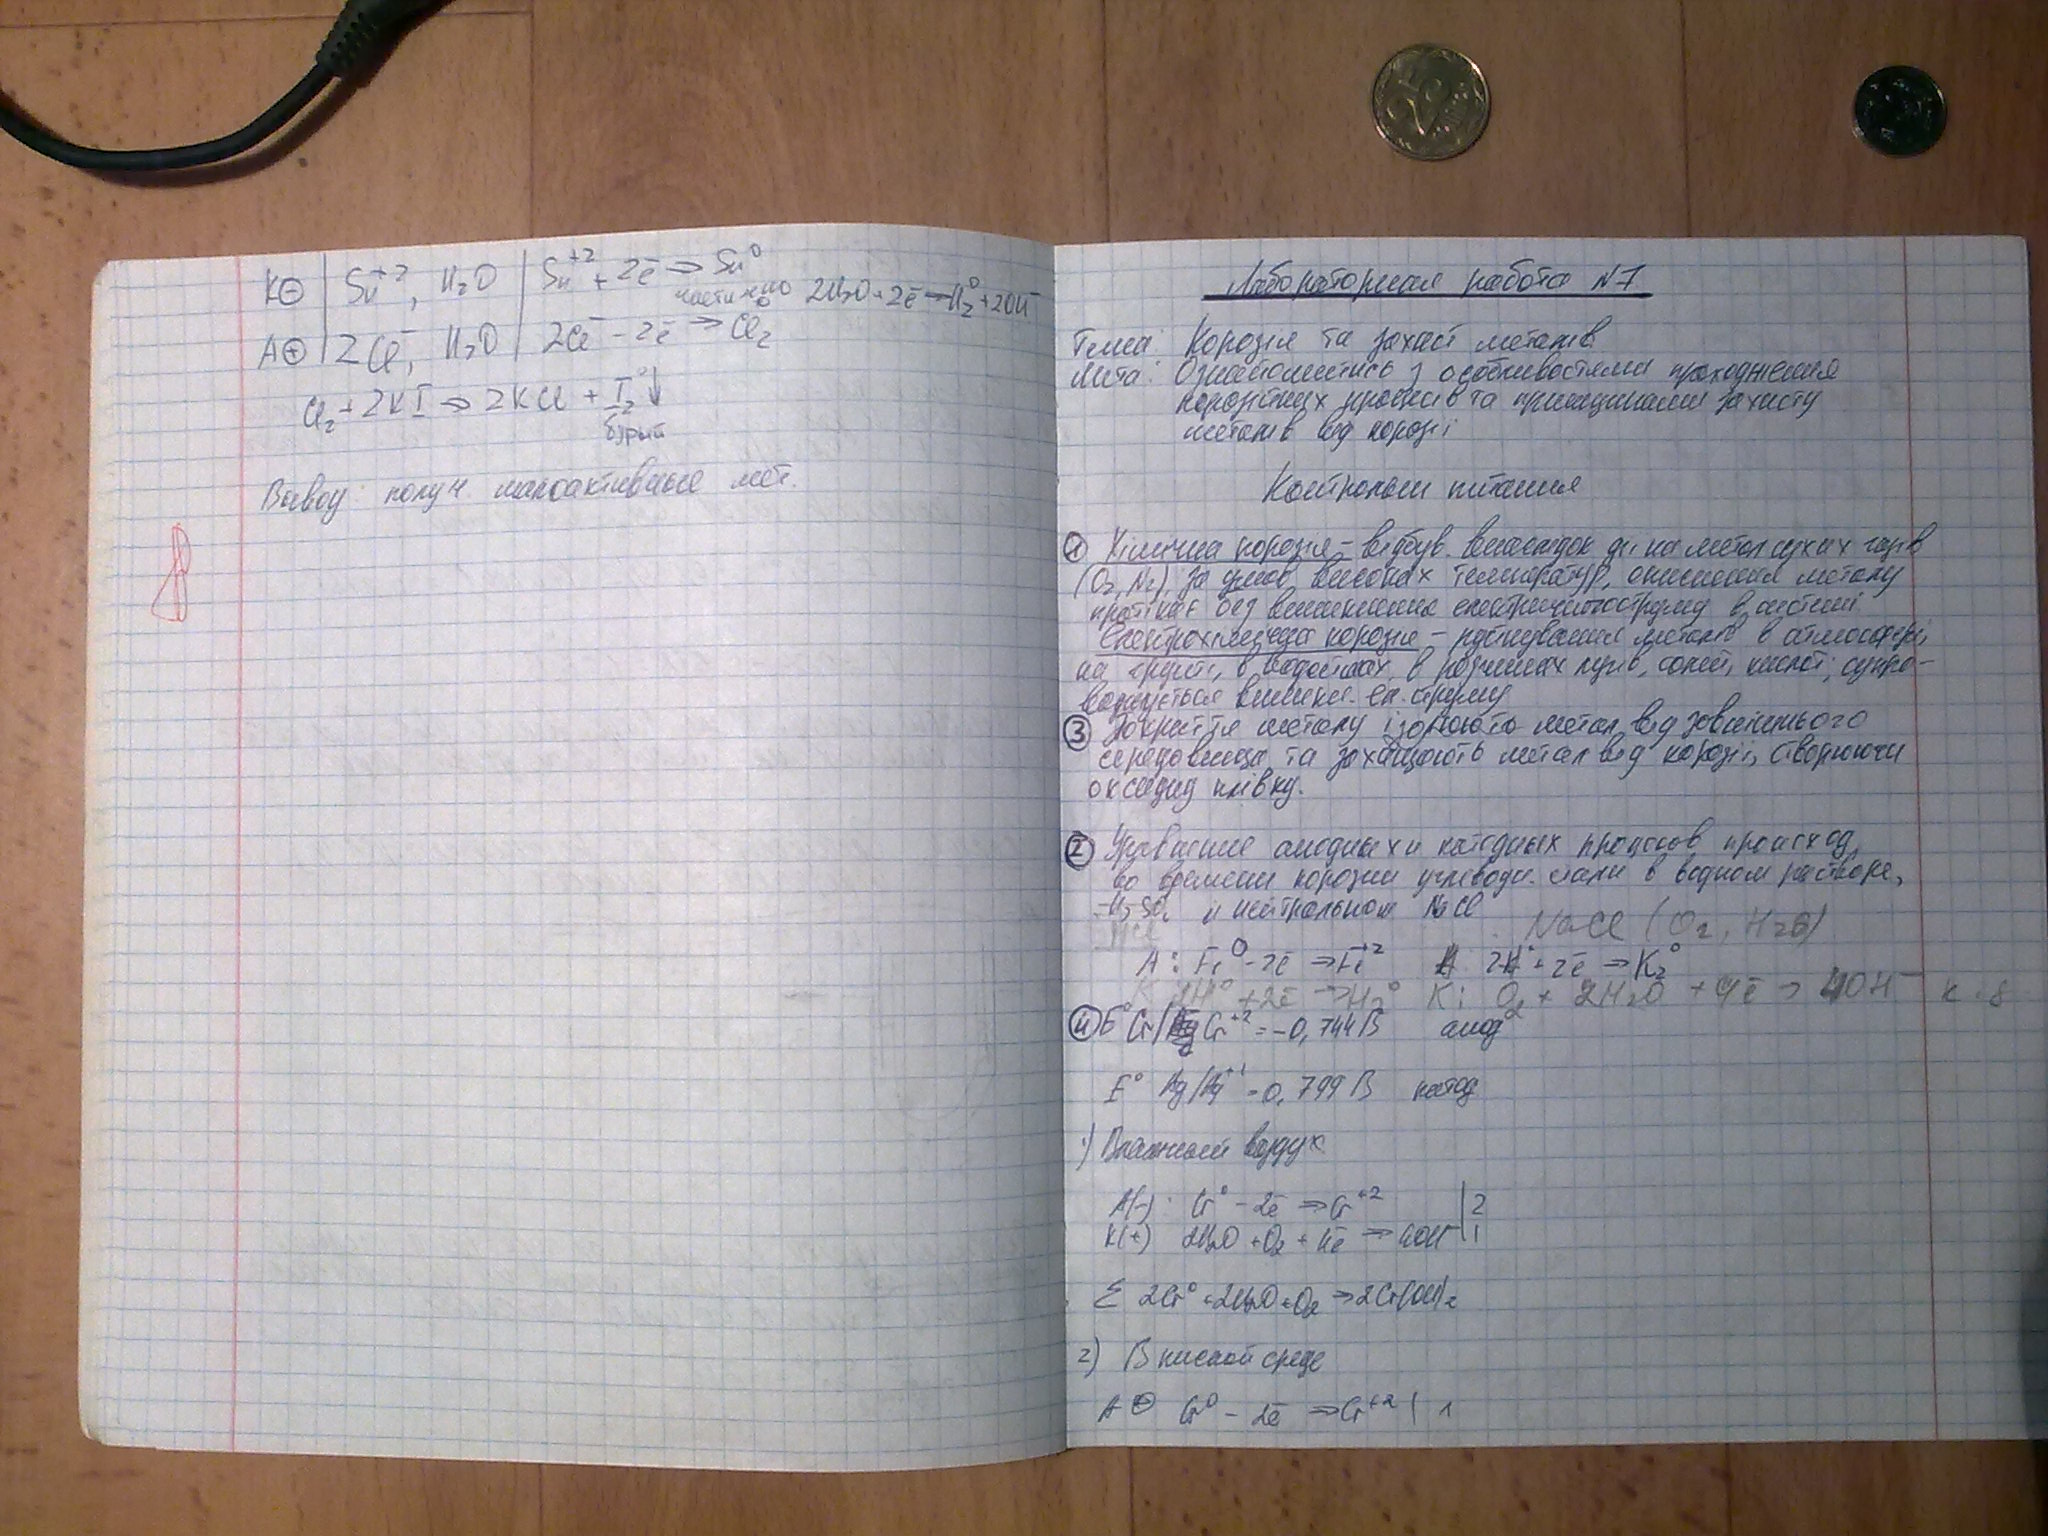 K⊖ | Sn⁺², H₂O | Sn⁺² + 2ē ⇒ Sn⁰
частично 2H₂O + 2ē → H₂⁰ + 2OH⁻
A⊕ | 2Cl⁻, H₂O | 2Cl⁻ - 2ē ⇒ Cl₂
Cl₂ + 2KI ⇒ 2KCl + I₂⁰↓
бурый
Вывод: получ. малоактивные мет.
Лабораторная работа N7
Тема: Корозія та захист металів
Мета: Ознайомитись з особливостями проходження
корозійних процесів та принципами захисту
металів від корозії
Контрольні питання
① Хімічна корозія – відбув. внаслідок дії на метал сухих газів
(O₂, N₂), за умов високих температур, окиснення металу
протікає без виникнення електричного струму в системі.
Електрохімічна корозія – руйнування металів в атмосфері,
на грунті, в водоймах, в розчинах лугів, солей, кислот; супро-
воджується виникн. ел. струму
③ Покриття металу ізолюють метал від зовнішнього
середовища та захищають метал від корозії, створюючи
оксидну плівку.
② Уравнение анодных и катодных процессов происход.
во времени корозии углеводн. стали в водном растворе,
H₂SO₄ и нейтральном NaCl
HCl NaCl (O₂, H₂O)
A: Fe⁰ - 2ē ⇒ Fe⁺² 2ē ⇒ K₂⁰
K: 2H⁰ + 2ē → H₂⁰ K: O₂ + 2H₂O + 4ē → 4OH⁻
④ E⁰ Cr/Cr⁺² = -0,744 В анод
E⁰ Ag/Ag⁺¹ = 0,799 В катод
1) Влажный воздух
A(-): Cr⁰ - 2ē ⇒ Cr⁺² | 2
K(+) 2H₂O + O₂ + 4ē ⇒ 4OH⁻ | 1
Σ 2Cr⁰ + 2H₂O + O₂ → 2Cr(OH)₂
2) В кислой среде
A⊖ Cr⁰ - 2ē ⇒ Cr⁺² | 1
25